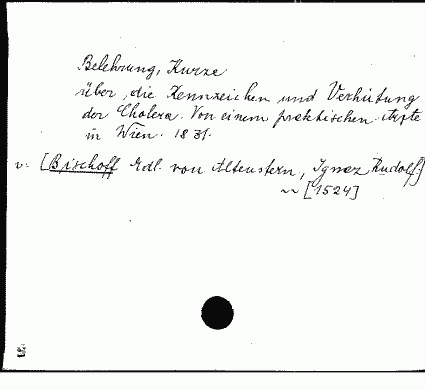 Belehrung, Kurze
über die Kennzeichen und Verhütung
der Cholera. Von einem praktischen Arzte
in Wien. 1831.
v. [Bischoff Edl. von Altenstern, Ignaz Rudolf]
~~ [1524]